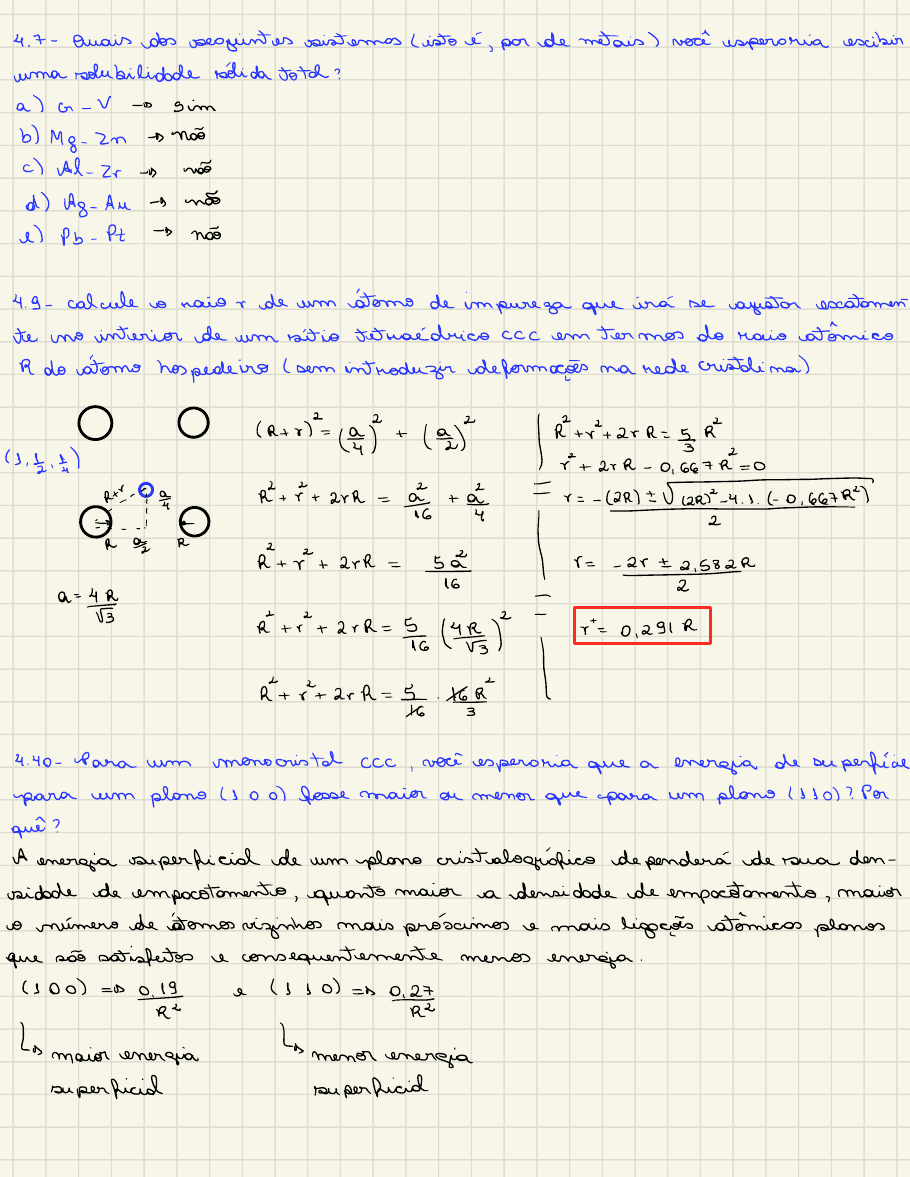 4.7- Quais dos seguintes sistemas (isto é, par de metais) você esperaria exibir
uma solubilidade sólida total?
a) Cr - V → sim
b) Mg - Zn → não
c) Al - Zr → não
d) Ag - Au → não
e) Pb - Pt → não
4.9- calcule o raio r de um átomo de impureza que irá se ajustar exatamen
te no interior de um sítio tetraédrico CCC em termos do raio atômico
R do átomo hospedeiro (sem introduzir deformações na rede cristalina)
(1, 1/2, 1/4)
R+r a/4
R a/2 R
a = 4R/√3
(R+r)² = (a/4)² + (a/2)²
R² + r² + 2rR = a²/16 + a²/4
R² + r² + 2rR = 5a²/16
R² + r² + 2rR = 5/16 (4R/√3)²
R² + r² + 2rR = 5/16 · 16R²/3
R² + r² + 2rR = 5/3 R²
r² + 2rR - 0,667R² = 0
r = -(2R) ± √((2R)² - 4.1.(-0,667R²)) / 2
r = -2r ± 2,582R / 2
r⁺ = 0,291 R
4.40- Para um monocristal CCC, você esperaria que a energia de superfície
para um plano (1 0 0) fosse maior ou menor que para um plano (1 1 0)? Por
quê?
A energia superficial de um plano cristalográfico dependerá de sua den-
sidade de empacotamento, quanto maior a densidade de empacotamento, maior
o número de átomos vizinhos mais próximos e mais ligações atômicas planos
que são satisfeitos e consequentemente menos energia.
(1 0 0) ⇒ 0,19/R² e (1 1 0) ⇒ 0,27/R²
↳ maior energia superficial
↳ menor energia superficial